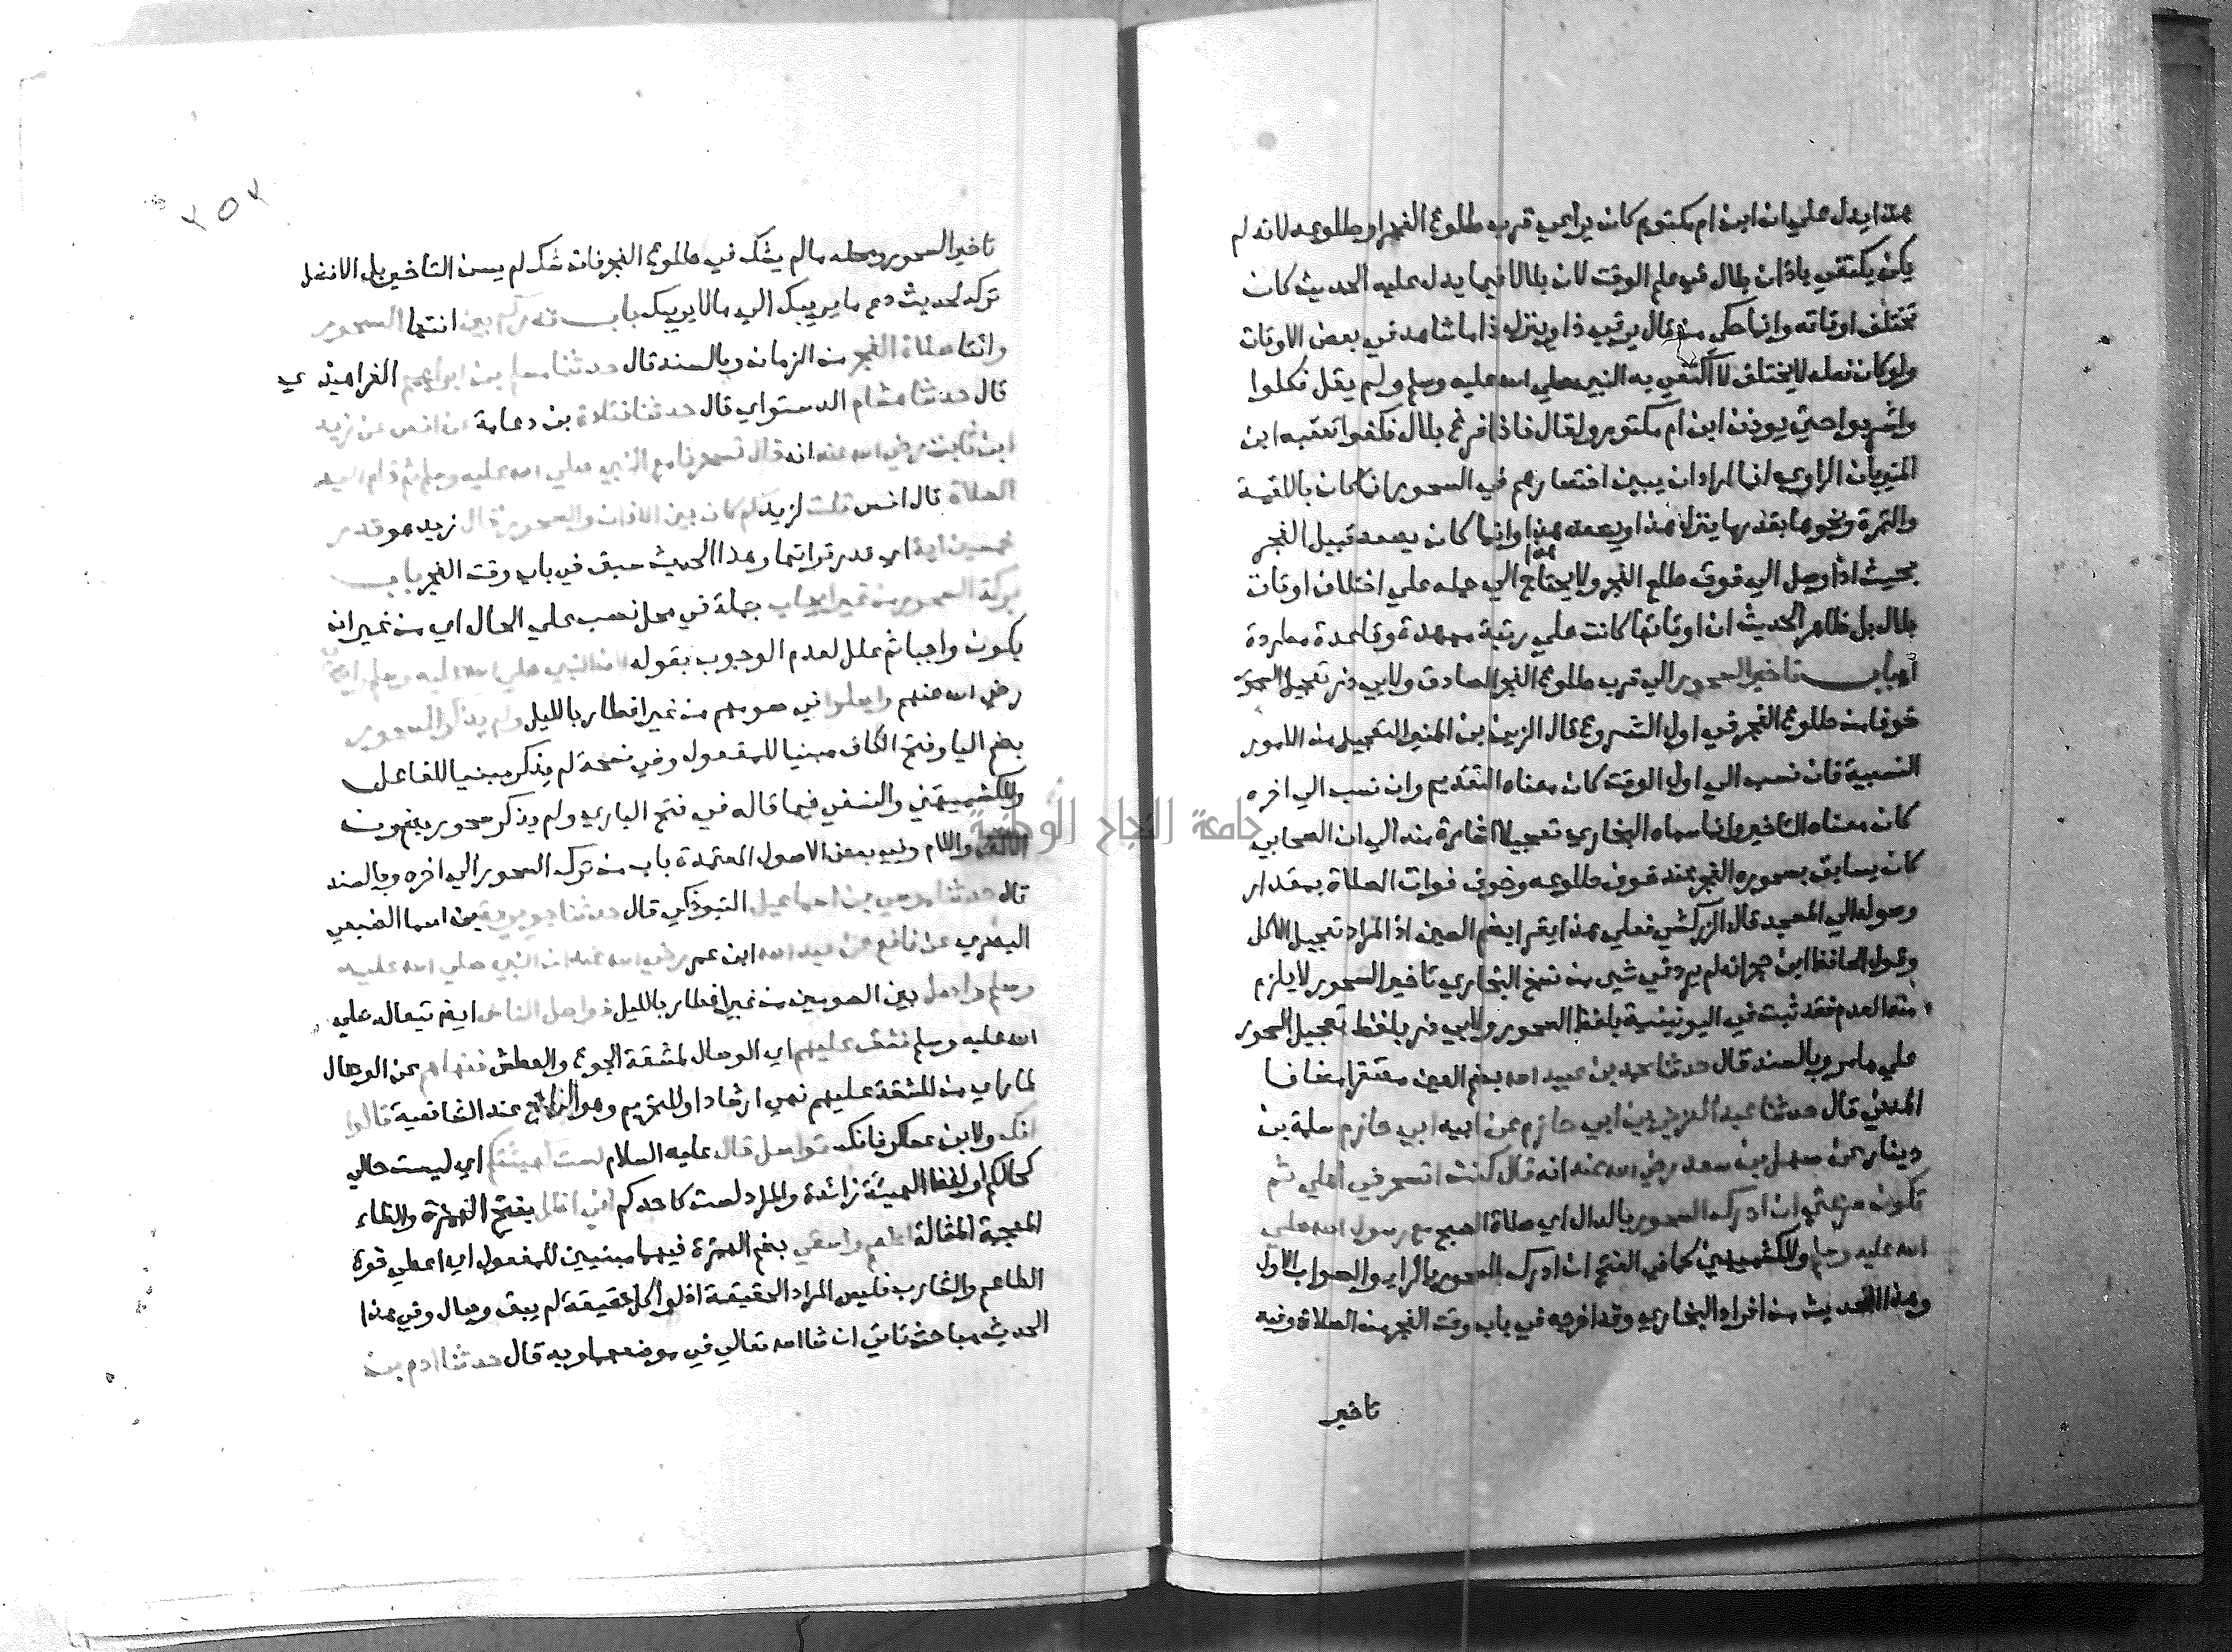 هذا يدل علي ان ابن ام مكتوم كان يراعي قرب طلوع الفجر او طلوعه لانه لم
يكن يكتفي باذان بلال في علم الوقت لان بلالا فيما يدل عليه الحديث كان
تختلف اوقاته وانما حكي من قال يرقي ذا وينزل ذا ما شاهد في بعض الاوقات
ولو كان فعله لا يختلف لاكتفي به النبي صلي الله عليه وسلم ولم يقل فكلوا
واشربوا حتي يوذن ابن ام مكتوم ولقال فاذا فرغ بلال فكفوا تعقبه ابن
المنير بان الراوي انما اراد ان يبين اختصارهم في السحور انما كان باللقمة
والتمرة ونحوها بقدر ما ينزل هذا ويصعد هذا وانما كان يصعد قبيل الفجر
بحيث اذا وصل الي فوق طلع الفجر ولا يحتاج هذا الي حمله علي اختلاف اوقات
بلال بل ظاهر الحديث ان اوقاتها كانت علي رتبة ممهدة وقاعدة مطردة
باب تاخير السحور الي قرب طلوع الفجر الصادق ولابي ذر تعجيل السحور
خوفا من طلوع الفجر في اول الشروع قال الزين بن المنير التعجيل من الامور
النسبية فان نسب الي اول الوقت كان معناه التقديم وان نسب الي اخره
كان معناه التاخير وانما سماه البخاري تعجيلا اشارة منه الي ان الصحابي
كان يسابق بسحوره الفجر عند خوف طلوعه وخوف فوات الصلاة بمقدار
وصوله الي المسجد قال الزركشي فعلي هذا يقرا بضم السين اذ المراد تعجيل الاكل
وقول الحافظ ابن حجر انه لم ير في شي من نسخ البخاري تاخير السحور لا يلزم
منه العدم فقد ثبت في اليونينية بلفظ السحور ولابي ذر بلفظ تعجيل السحور
علي ما مر وبالسند قال حدثنا محمد بن عبيد الله بضم العين مصغرا مضافا
المدني قال حدثنا عبد العزيز بن ابي حازم عن ابيه ابي حازم سلمة بن
دينار عن سهل بن سعد رضي الله عنه انه قال كنت اتسحر في اهلي ثم
تكون سرعتي ان ادرك السحور بالدال اي صلاة الصبح مع رسول الله صلي
الله عليه وسلم وللكشميهني كما في الفتح ان ادرك السحور بالراء والصواب الاول
وهذا الحديث من افراد البخاري وقد اخرجه في باب وقت الفجر من الصلاة وفيه
تاخير
٢٥٢
تاخير السحور ومحله ما لم يشك في طلوع الفجر فان شك لم يسن التاخير بل الافضل
تركه لحديث دع ما يريبك الي ما لا يريبك باب قدر كم بين انتها السحور
وابتدا صلاة الفجر من الزمان وبالسند قال حدثنا مسلم بن ابراهيم الفراهيدي
قال حدثنا هشام الدستواي قال حدثنا قتادة بن دعامة عن انس عن زيد
ابن ثابت رضي الله عنه انه قال تسحرنا مع النبي صلي الله عليه وسلم ثم قام الي
الصلاة قال انس قلت لزيد كم كان بين الاذان والسحور قال زيد هو قدر
خمسين اية اي قدر قراتها وهذا الحديث سبق في باب وقت الفجر باب
بركة السحور من غير ايجاب جملة في محل نصب علي الحال اي من غير ان
يكون واجبا ثم علل لعدم الوجوب بقوله لان النبي صلي الله عليه وسلم واصحابه
رضي الله عنهم واصلوا في صومهم من غير افطار بالليل ولم يذكر السحور
بضم اليا وفتح الكاف مبنيا للمفعول وفي نسخة لم يذكر مبنيا للفاعل
وللكشميهني والنسفي فيما قاله في فتح الباري ولم يذكر سحور بدون
الالف واللام وفي بعض الاصول المعتمدة باب من ترك السحور الي اخره وبالسند
قال حدثنا موسي بن اسماعيل التبوذكي قال حدثنا جويرية بن اسما الضبعي
البصري عن نافع عن عبد الله ابن عمر رضي الله عنه ان النبي صلي الله عليه
وسلم واصل بين الصومين من غير افطار بالليل فواصل الناس ايضا تبعا له صلي
الله عليه وسلم فشق عليهم اي الوصال لمشقة الجوع والعطش فنهاهم عن الوصال
لما راي من المشقة عليهم نهي ارشاد او للتحريم وهو الراجح عند الشافعية قالوا
انك ولابن عساكر فانك تواصل قال عليه السلام لست كهيئتكم اي ليست حالي
كحالكم او لفظ الهيئة زائدة والمراد لست كاحدكم اني اظل بفتح الهمزة والظاء
المعجمة المشالة اطعم واسقي بضم الهمزة فيهما مبنيين للمفعول اي اعطي قوة
الطاعم والشارب فليس المراد الحقيقة اذ لو اكل حقيقة لم يبق وصال وفي هذا
الحديث مباحث تاتي ان شا الله تعالي في موضعها وبه قال حدثنا ادم بن
جامعة النجاح الوطنية